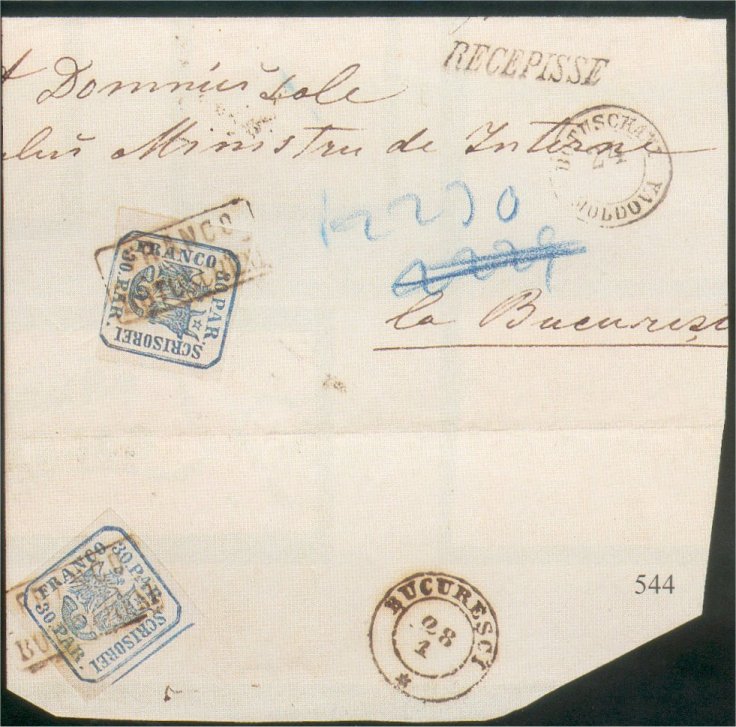 RECEPISSE
Domniei sale
Ministru de Interne
BOTUSCHANI
24
MOLDOVA
12270
FRANCO
FRANCO
30 PAR.
30 PAR.
SCRISOREI
la Bucuresci
FRANCO
30 PAR.
30 PAR.
SCRISOREI
BUCURESCI
28
1
544